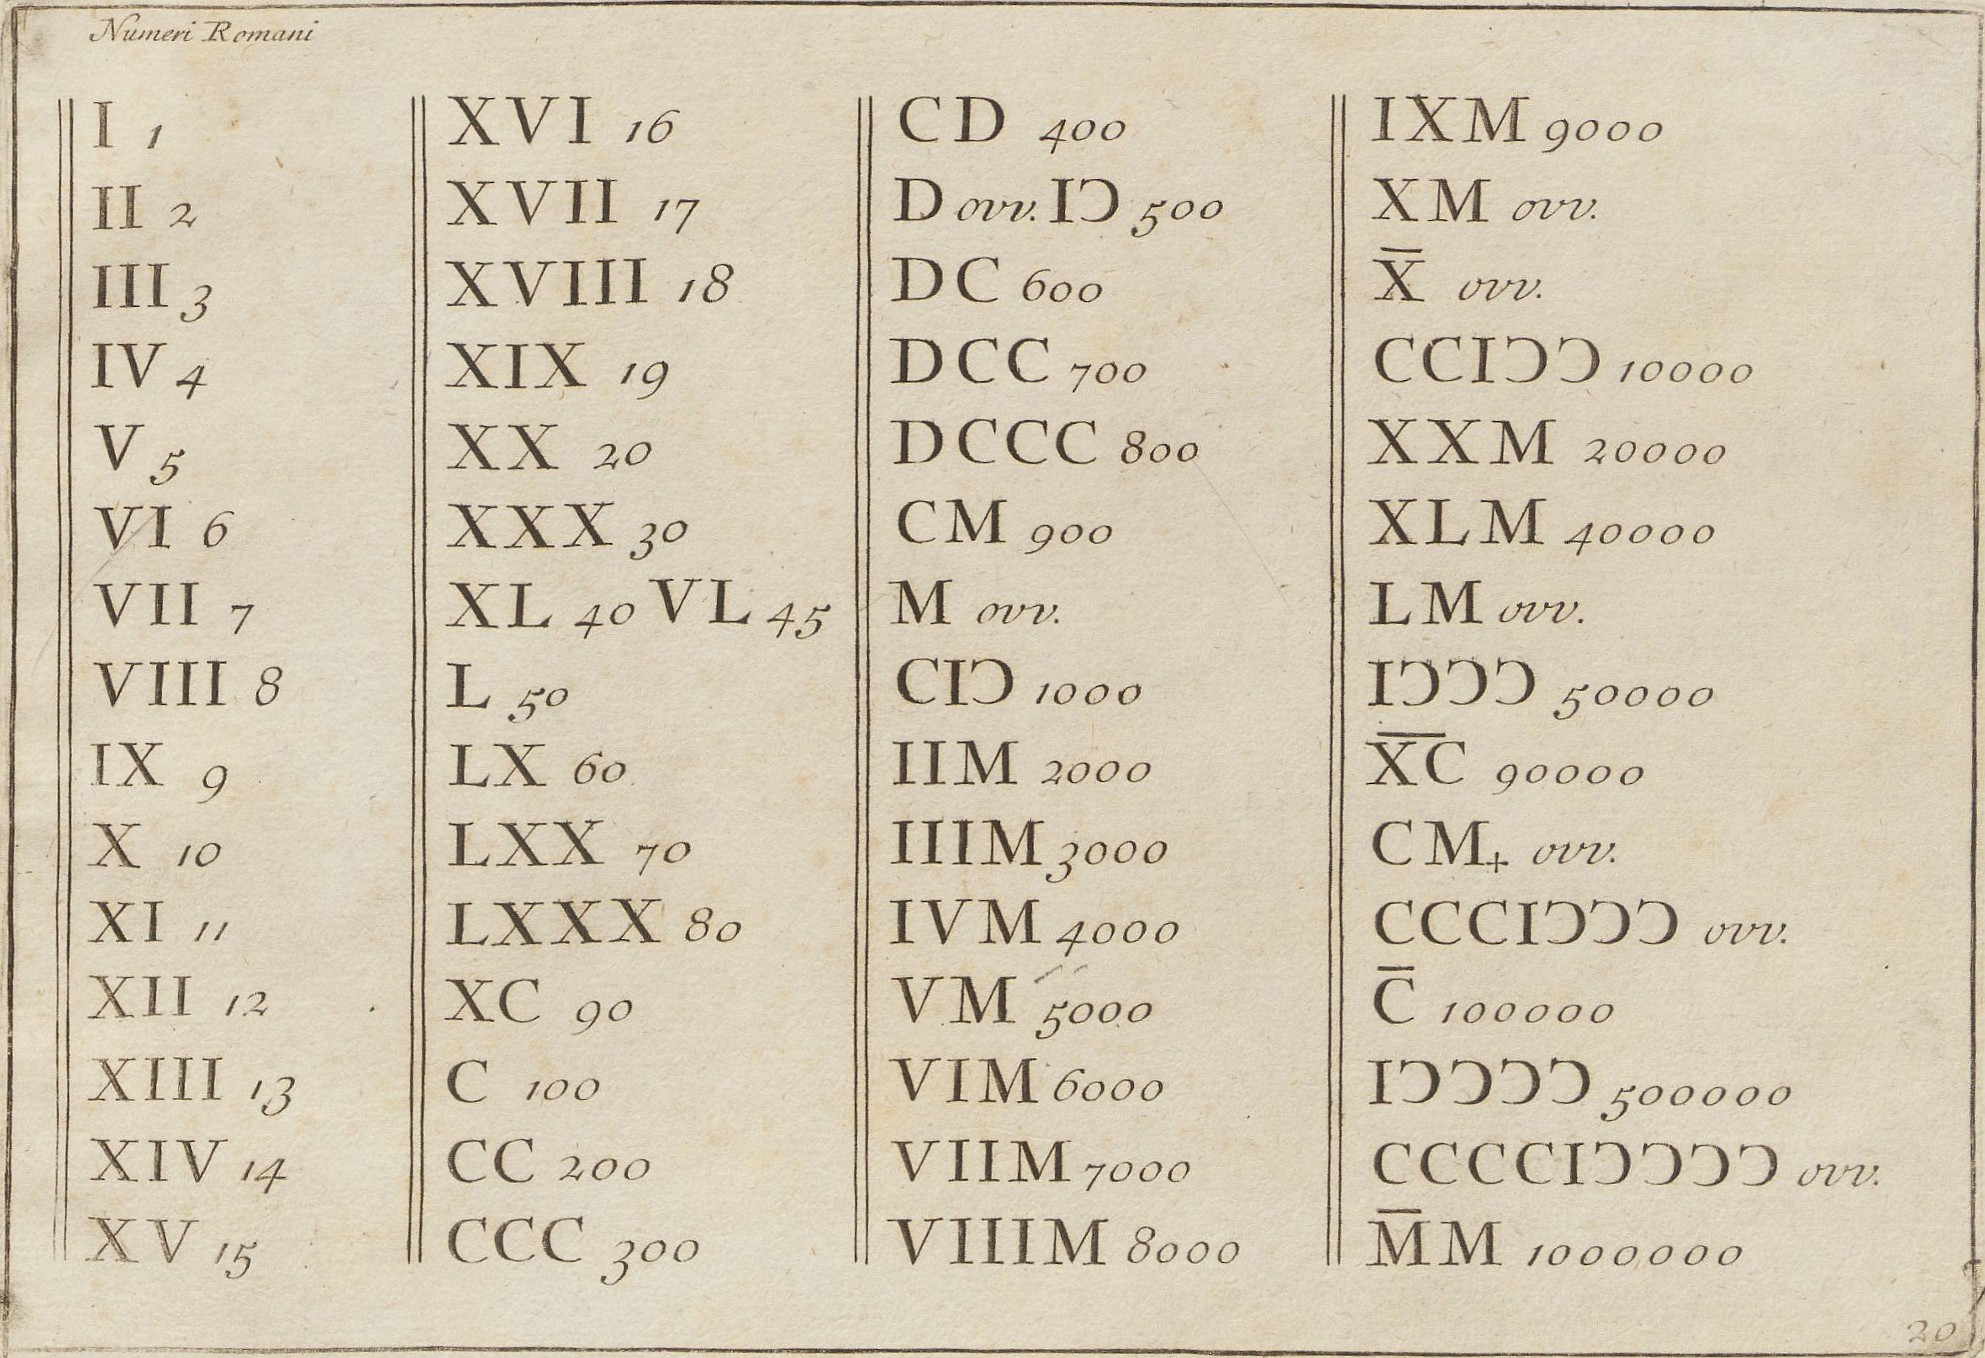 Numeri Romani
I 1
II 2
III 3
IV 4
V 5
VI 6
VII 7
VIII 8
IX 9
X 10
XI 11
XII 12
XIII 13
XIV 14
XV 15
XVI 16
XVII 17
XVIII 18
XIX 19
XX 20
XXX 30
XL 40 VL 45
L 50
LX 60
LXX 70
LXXX 80
XC 90
C 100
CC 200
CCC 300
CD 400
D ovv. IↃ 500
DC 600
DCC 700
DCCC 800
CM 900
M ovv.
CIↃ 1000
IIM 2000
IIIM 3000
IVM 4000
VM 5000
VIM 6000
VIIM 7000
VIIIM 8000
IXM 9000
XM ovv.
X̅ ovv.
CCIↃↃ 10000
XXM 20000
XLM 40000
LM ovv.
IↃↃↃ 50000
X̅C̅ 90000
CM+ ovv.
CCCIↃↃↃ ovv.
C̅ 100000
IↃↃↃↃ 500000
CCCCIↃↃↃↃ ovv.
M̅M 1000000
20